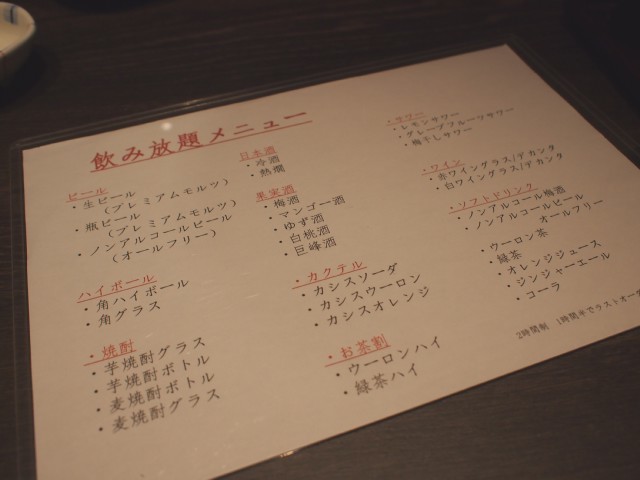 飲み放題メニュー
ビール
・生ビール
（プレミアムモルツ）
・瓶ビール
（プレミアムモルツ）
・ノンアルコールビール
（オールフリー）
ハイボール
・角ハイボール
・角グラス
・焼酎
・芋焼酎グラス
・芋焼酎ボトル
・麦焼酎ボトル
・麦焼酎グラス
日本酒
・冷酒
・熱燗
果実酒
・梅酒
・マンゴー酒
・ゆず酒
・白桃酒
・巨峰酒
・カクテル
・カシスソーダ
・カシスウーロン
・カシスオレンジ
・お茶割
・ウーロンハイ
・緑茶ハイ
・サワー
・レモンサワー
・グレープフルーツサワー
・梅干しサワー
・ワイン
・赤ワイングラス/デカンタ
・白ワイングラス/デカンタ
・ソフトドリンク
・ノンアルコール梅酒
・ノンアルコールビール
オールフリー
・ウーロン茶
・緑茶
・オレンジジュース
・ジンジャーエール
・コーラ
2時間制　1時間半でラストオーダ